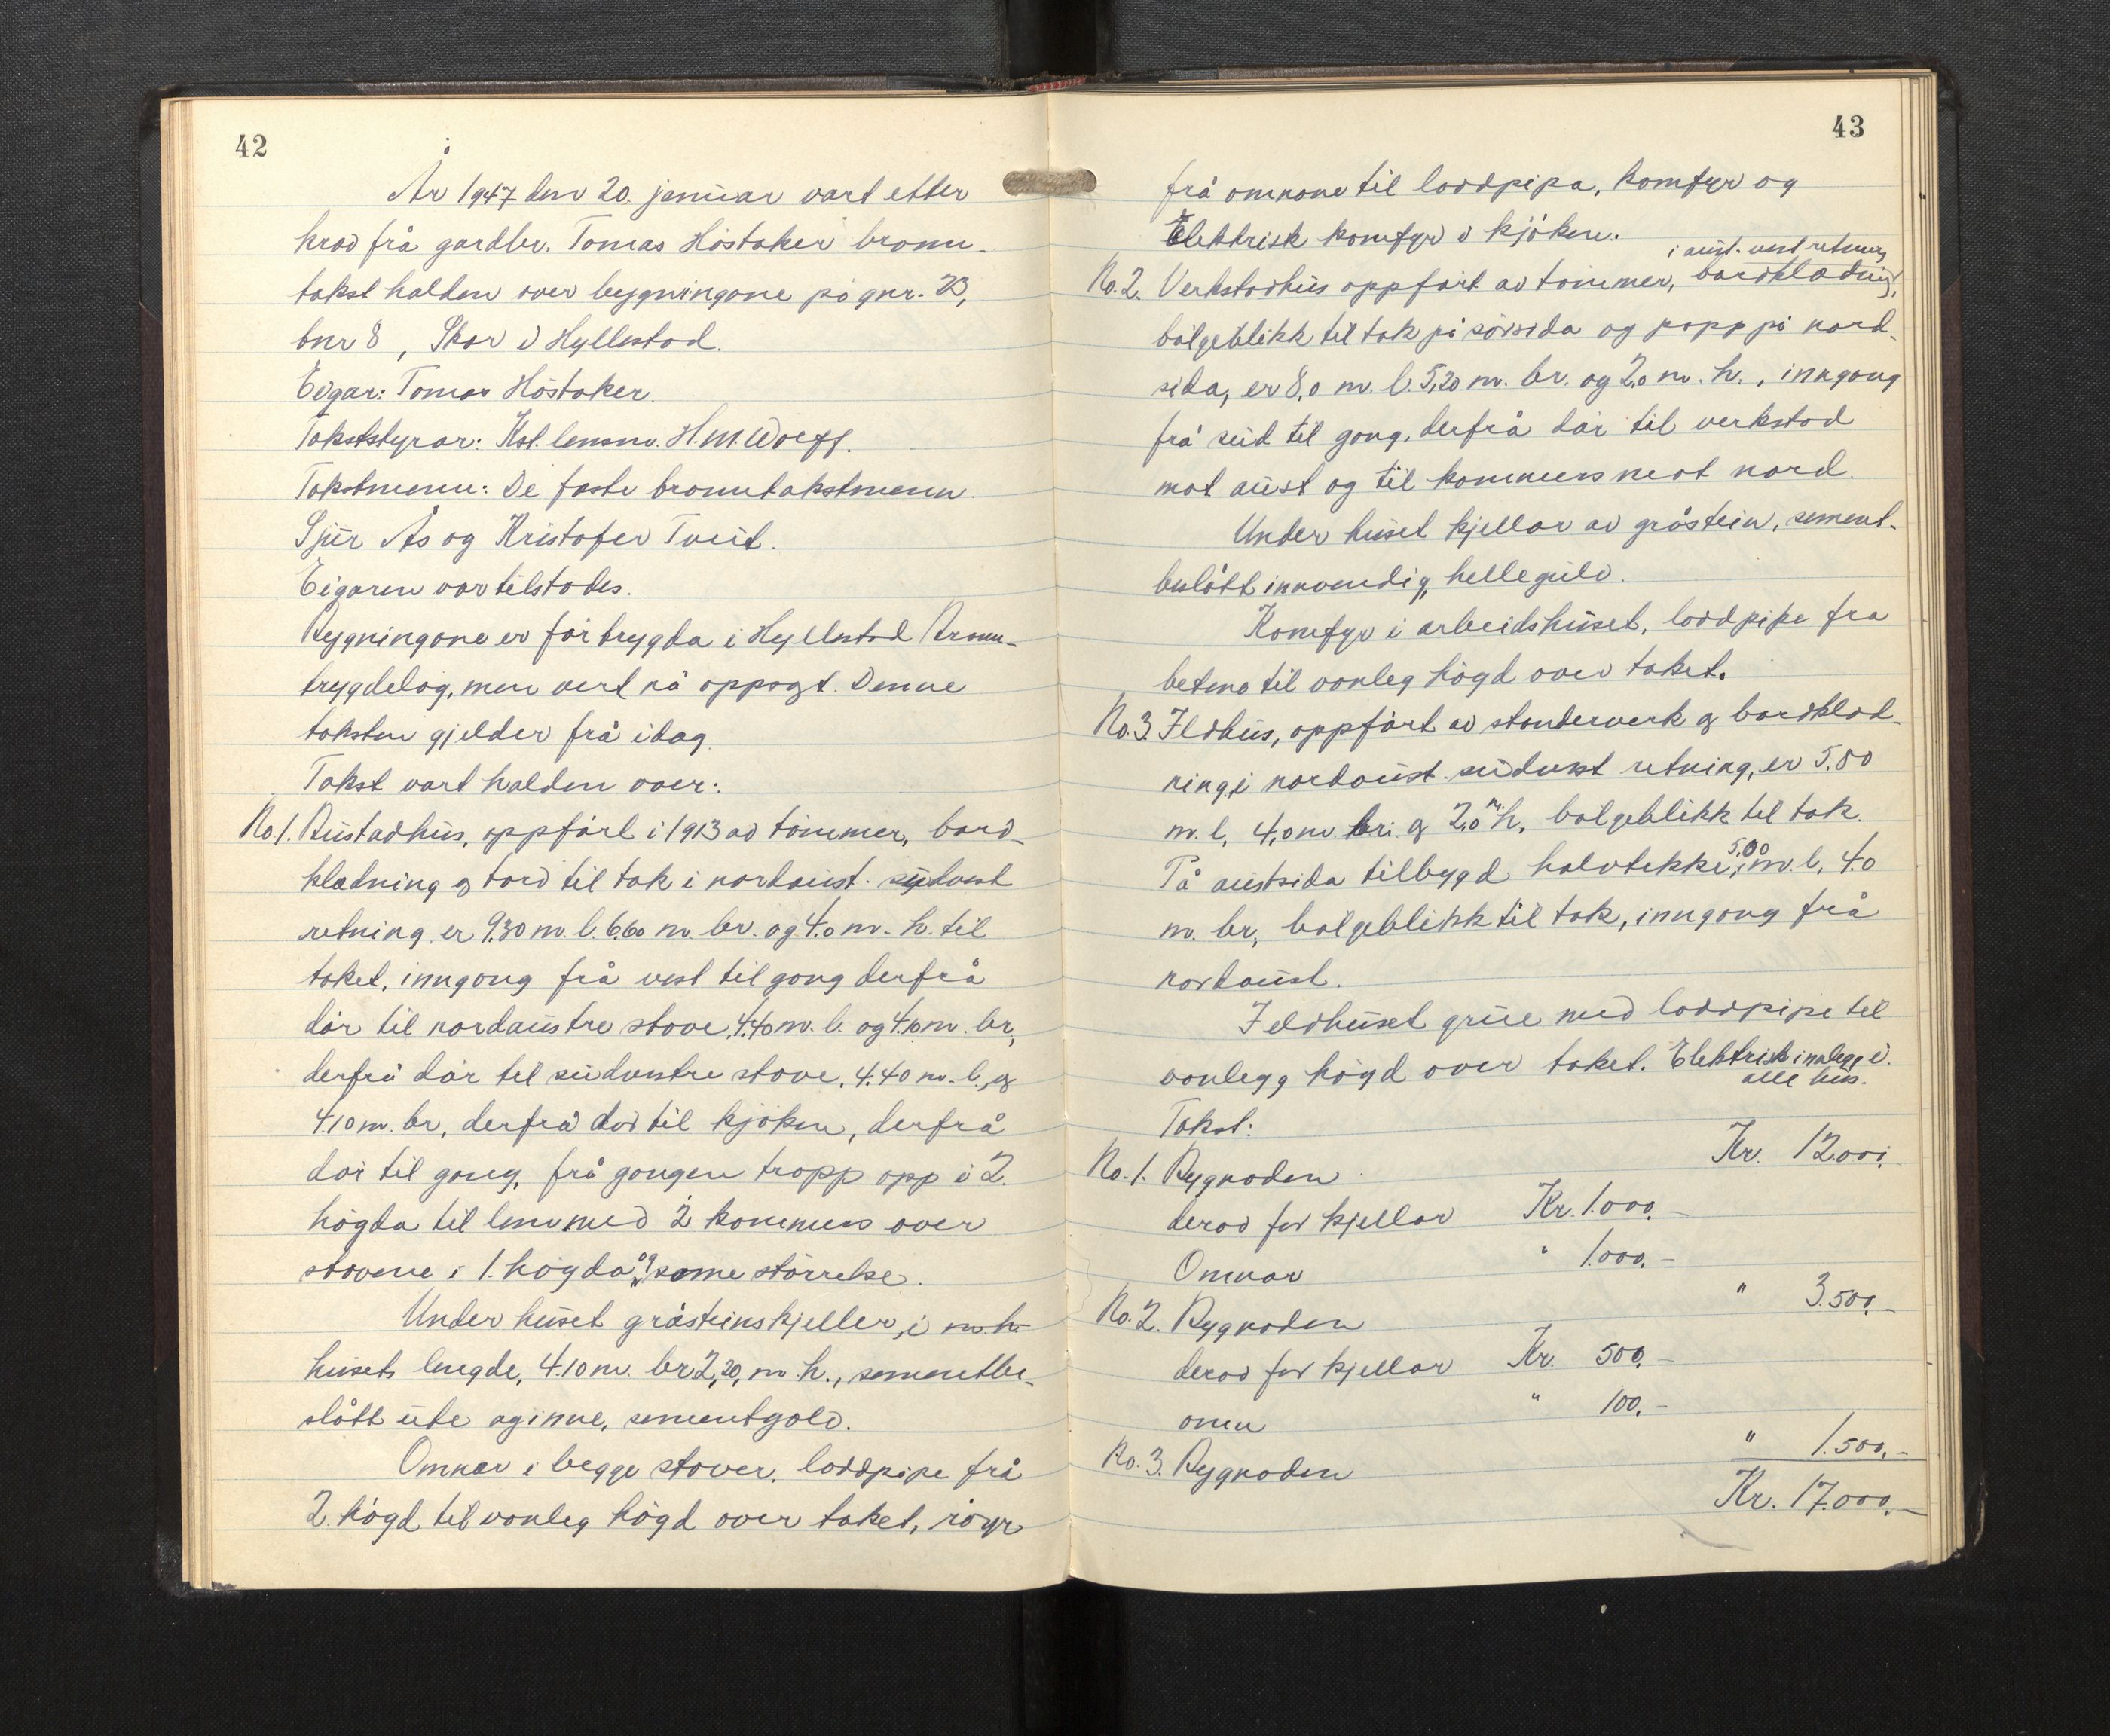 42
År 1947 den 20. januar vart etter
krav frå gardbr. Tomas Høstaker brann-
takst halden over bygningane på gnr. 23,
bnr 8, Skor i Hyllestad.
Eigar: Tomas Høstaker.
Takststyrar: Kst. lensm. H. M. Wolff.
Takstmenn: De faste branntakstmenn
Sjur Ås og Kristofer Tveit.
Eigaren var tilstades.
Bygningane er før trygda i Hyllestad Brann-
trygdelag, men vert nå oppsagt. Denne
taksten gjelder frå idag.
Takst vart halden over:
No. 1. Bustadhus, oppført i 1913 av tømmer, bord-
kladning og torv til tak i nordaust-sydvest
retning er 9.30 m. l. 6.60 m. br. og 4.0 m. h. til
taket, inngong frå vest til gong derfrå
dør til nordaustre stove, 4.40 m. l. og 4.10 m. br,
derfrå dør til sudvestre stove, 4.40 m. l. og
4.10 m. br, derfrå dør til kjøken, derfrå
dør til gong, frå gongen tropp opp i 2.
høgda til lem med 2 kammers over
stovene i 1. høgda og same størrelse.
Under huset gråsteinskjeller, i m. h.
husets lengde, 4.10 m. br 2,20, m. h., sementbe-
slått ute og inne, sementgolv.
Omnar i begge stover, loddpipe frå
2. høgd til vanleg høgd over taket, røyr
43
frå omnane til loddpipa, komfyr og
Elektrisk komfyr i kjøken.
i aust-vest retning
No. 2. Verkstadhus oppført av tømmer, bordkladning,
bølgeblikk til tak på sørsida og papp på nord-
sida, er 8,0 m. l. 5,20 m. br. og 2,0 m. h., inngong
frå sud til gong, derfrå dør til verkstad
mot aust og til kammers mot nord.
Under huset kjellar av gråstein, sement-
beslått innvendig, hellegulv.
Komfyr i arbeidshuset, loddpipe fra
betong til vanleg høgd over taket.
No. 3. Ildhus, oppført av standerverk og bordklad-
ning, i nordaust-sudvest retning, er 5.80
m. l, 4,0 m. br. og 2,0 m. h, bølgeblikk til tak.
På austsida tilbygd halvtekke, 5,00 m. l, 4.0
m. br, bølgeblikk til tak, inngong frå
nordaust.
I eldhuset grue med loddpipe til
vanlegg høgd over taket. Elektrisk innlegg i
alle hus.
Takst:
No. 1. Bygnaden Kr. 12.000,-
derav for kjellar Kr. 1.000,-
Omnar " 1.000,-
No. 2. Bygnaden " 3.500,-
derav for kjellar Kr. 500,-
omn " 100,-
No. 3. Bygnaden " 1.500,-
Kr. 17.000,-